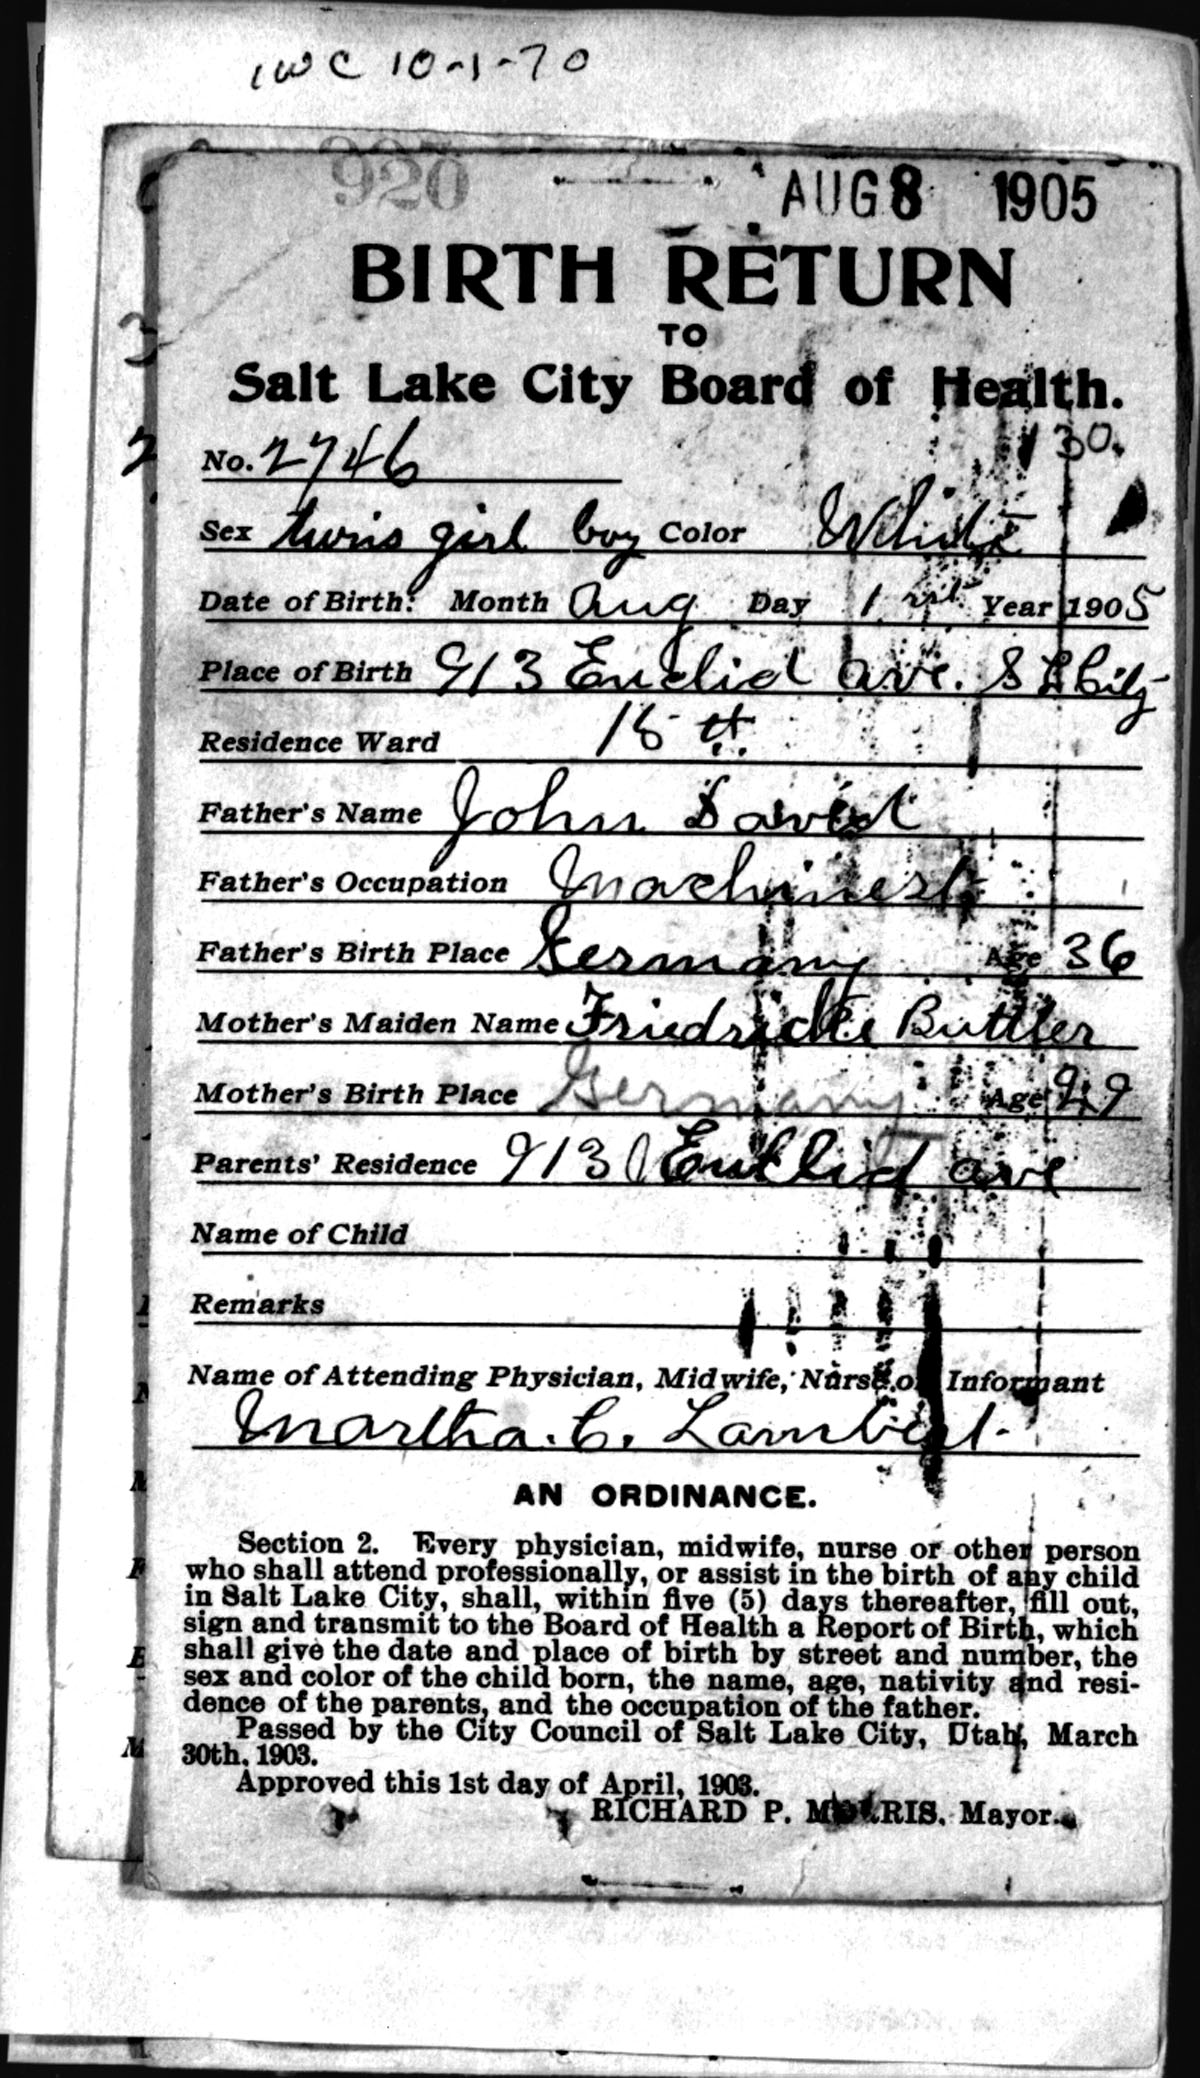 IWC 10-1-70
920
AUG 8 1905
BIRTH RETURN
TO
Salt Lake City Board of Health.
130.
No. 2746
Sex twins girl boy Color White
Date of Birth: Month Aug Day 1 Year 1905
Place of Birth 913 Euclid ave. S L City
Residence Ward 15th
Father's Name John David
Father's Occupation Machinest
Father's Birth Place Germany Age 36
Mother's Maiden Name Friedricke Buttler
Mother's Birth Place Germany Age 29
Parents' Residence 913 Euclid ave
Name of Child
Remarks
Name of Attending Physician, Midwife, Nurse or Informant
Martha. C. Lambert.
AN ORDINANCE.
Section 2. Every physician, midwife, nurse or other person
who shall attend professionally, or assist in the birth of any child
in Salt Lake City, shall, within five (5) days thereafter, fill out,
sign and transmit to the Board of Health a Report of Birth, which
shall give the date and place of birth by street and number, the
sex and color of the child born, the name, age, nativity and resi-
dence of the parents, and the occupation of the father.
Passed by the City Council of Salt Lake City, Utah, March
30th, 1903.
Approved this 1st day of April, 1903.
RICHARD P. MORRIS, Mayor.